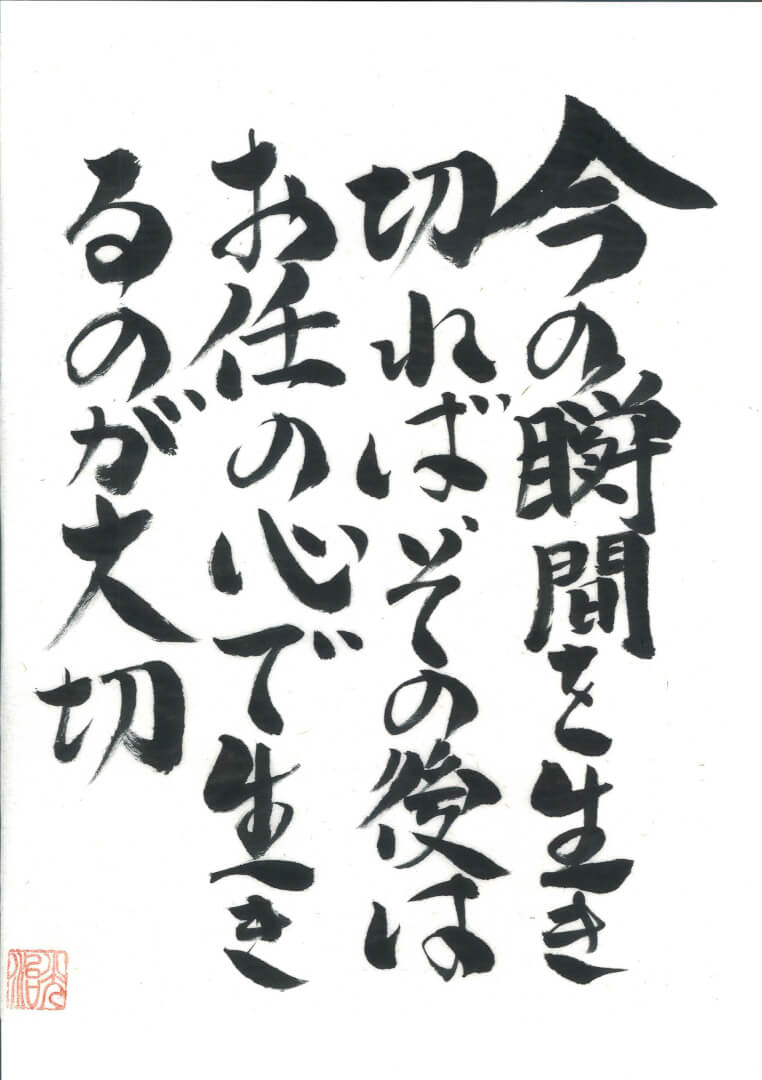 今の瞬間を生き
切ればその後は
お任の心で生き
るのが大切